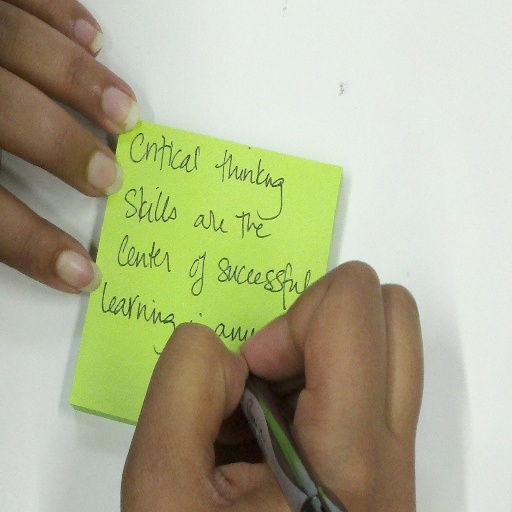 Critical thinking
Skills are the
Center of successful
learning